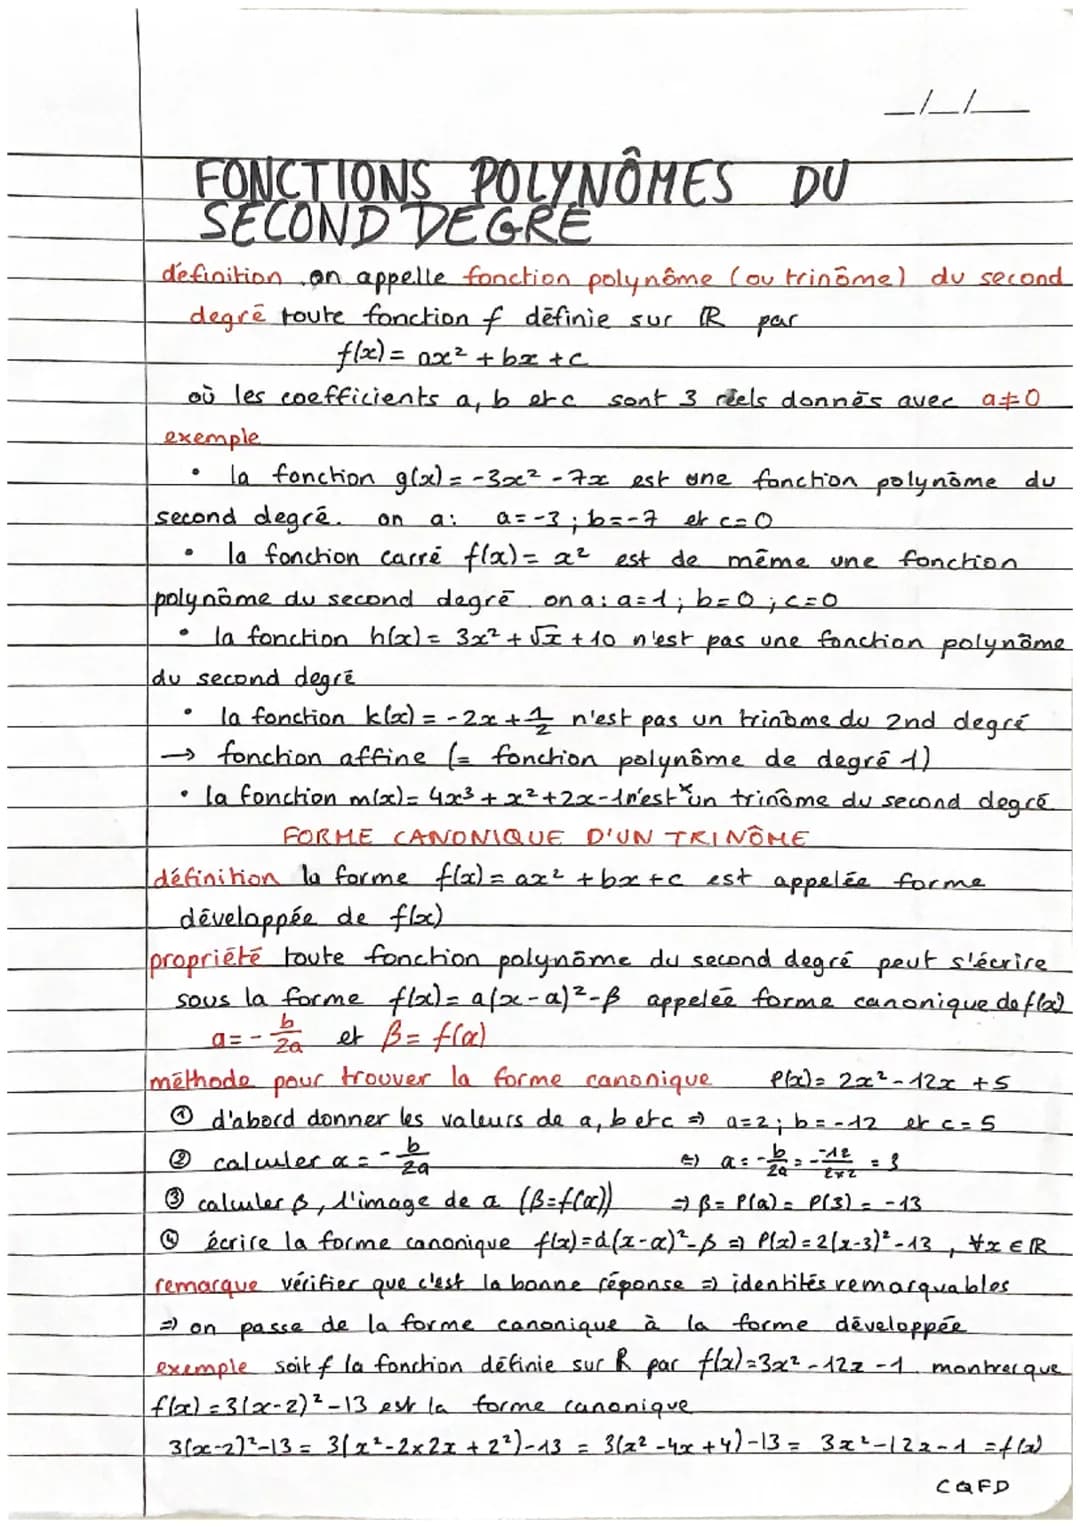 _/_/__
FONCTIONS POLYNÔMES DU
SECOND DEGRÉ
définition on appelle fonction polynôme (ou trinôme) du second
degré toute fonction f définie sur ℝ par
f(x) = ax² + bx + c
où les coefficients a, b et c sont 3 réels donnés avec a ≠ 0
exemple
• la fonction g(x) = -3x² - 7x est une fonction polynôme du
second degré. on a: a = -3 ; b = -7 et c = 0
• la fonction carré f(x) = x² est de même une fonction
polynôme du second degré on a: a = 1 ; b = 0 ; c = 0
• la fonction h(x) = 3x² + √x + 10 n'est pas une fonction polynôme
du second degré
• la fonction k(x) = -2x + 1/2 n'est pas un trinôme du 2nd degré
→ fonction affine (= fonction polynôme de degré 1)
• la fonction m(x) = 4x³ + x² + 2x - 1 n'est un trinôme du second degré
FORME CANONIQUE D'UN TRINÔME
définition la forme f(x) = ax² + bx + c est appelée forme
développée de f(x)
propriété toute fonction polynôme du second degré peut s'écrire
sous la forme f(x) = a(x - α)² - β appelée forme canonique de f(x)
α = - b/2a et β = f(α)
méthode pour trouver la forme canonique P(x) = 2x² - 12x + 5
① d'abord donner les valeurs de a, b et c ⇒ a = 2 ; b = -12 et c = 5
② calculer α = - b/2a ⇔ α = - b/2a = - -12/2×2 = 3
③ calculer β, l'image de α (β = f(α)) ⇒ β = P(α) = P(3) = -13
④ écrire la forme canonique f(x) = a(x - α)² - β ⇒ P(x) = 2(x-3)² - 13, ∀x ∈ ℝ
remarque vérifier que c'est la bonne réponse ⇒ identités remarquables
⇒ on passe de la forme canonique à la forme développée
exemple soit f la fonction définie sur ℝ par f(x) = 3x² - 12x - 1 montrer que
f(x) = 3(x-2)² - 13 est la forme canonique
3(x-2)² - 13 = 3(x² - 2×2x + 2²) - 13 = 3(x² - 4x + 4) - 13 = 3x² - 12x - 1 = f(x)
CQFD